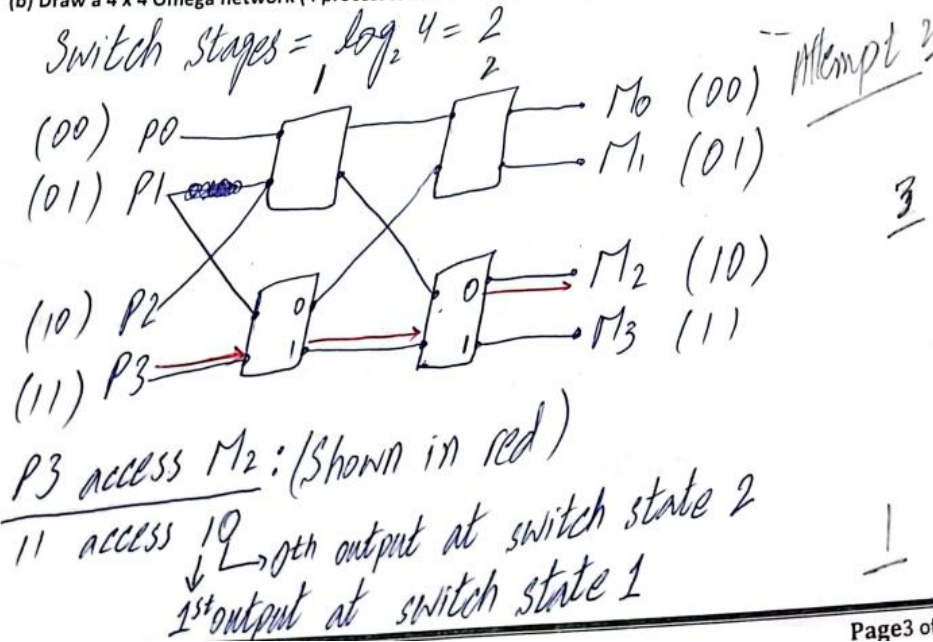 (b) Draw a 4 x 4 Omega network (4
Switch Stages = log₂ 4 = 2
Attempt
1 2
(00) P0 M0 (00)
(01) P1 M1 (01)
3
(10) P2 0 0 M2 (10)
(11) P3 1 1 M3 (11)
P3 access M2 : (Shown in red)
11 access 10
0th output at switch state 2
1st output at switch state 1
1
Page3 of